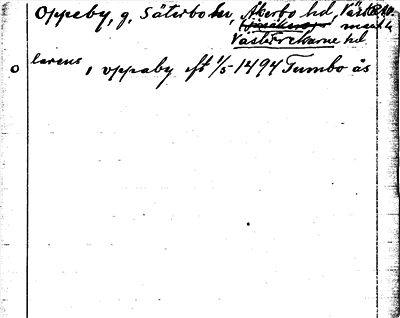 Oppeby, g, Säterbo sn, Åkerbo hd, Väst
Västerrekarne hd
larens, oppaby Aft 1/5 1494 Tumbo ås